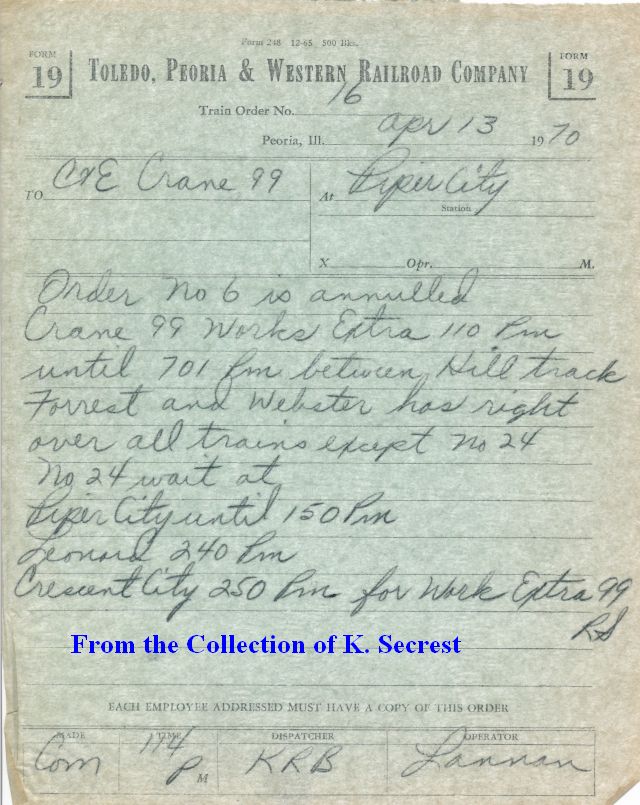 Form 248 12-65 500 Bks.
FORM 19
TOLEDO, PEORIA & WESTERN RAILROAD COMPANY
FORM 19
Train Order No. 16
Peoria, Ill. Apr 13 1970
TO C&E Crane 99
At Piper City
Station
X Opr. M.
Order No 6 is annulled
Crane 99 Works Extra 110 Pm
until 701 Pm between Hill track
Forrest and Webster has right
over all trains except No 24
No 24 wait at
Piper City until 150 Pm
Leonard 240 Pm
Crescent City 250 Pm for Work Extra 99
RS
From the Collection of K. Secrest
EACH EMPLOYEE ADDRESSED MUST HAVE A COPY OF THIS ORDER
MADE TIME DISPATCHER OPERATOR
Com 114 P M KRB Lannan